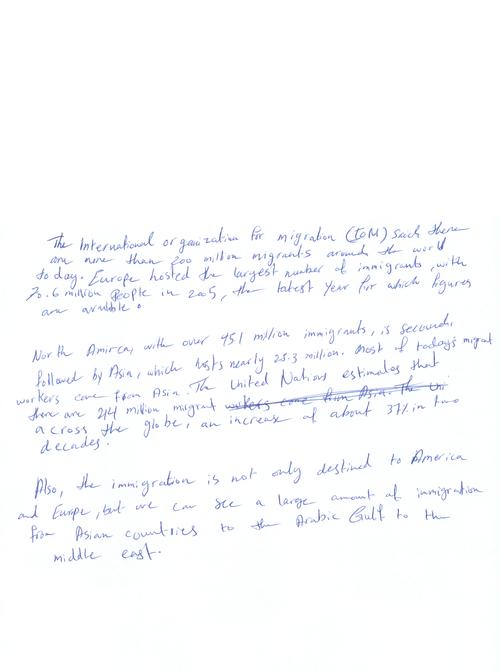 The International organization for migration (IOM) said there
are more than 200 million migrants around the world
today. Europe hosted the largest number of immigrants, with
70.6 million People in 2005, the latest year for which figures
are avalible.
North Amirca, with over 45.1 million immigrants, is second,
followed by Asia, which hosts nearly 25.3 million. Most of todays migrat
workers come from Asia. The United Nations estimates that
there are 214 million migrant workers come from Asia. The Uni
across the globe, an increase of about 37% in two
decades.
Also, the immigration is not only destined to America
and Europe, but we can see a large amount of immigration
from Asian countries to the Arabic Gulf to the
middle east.